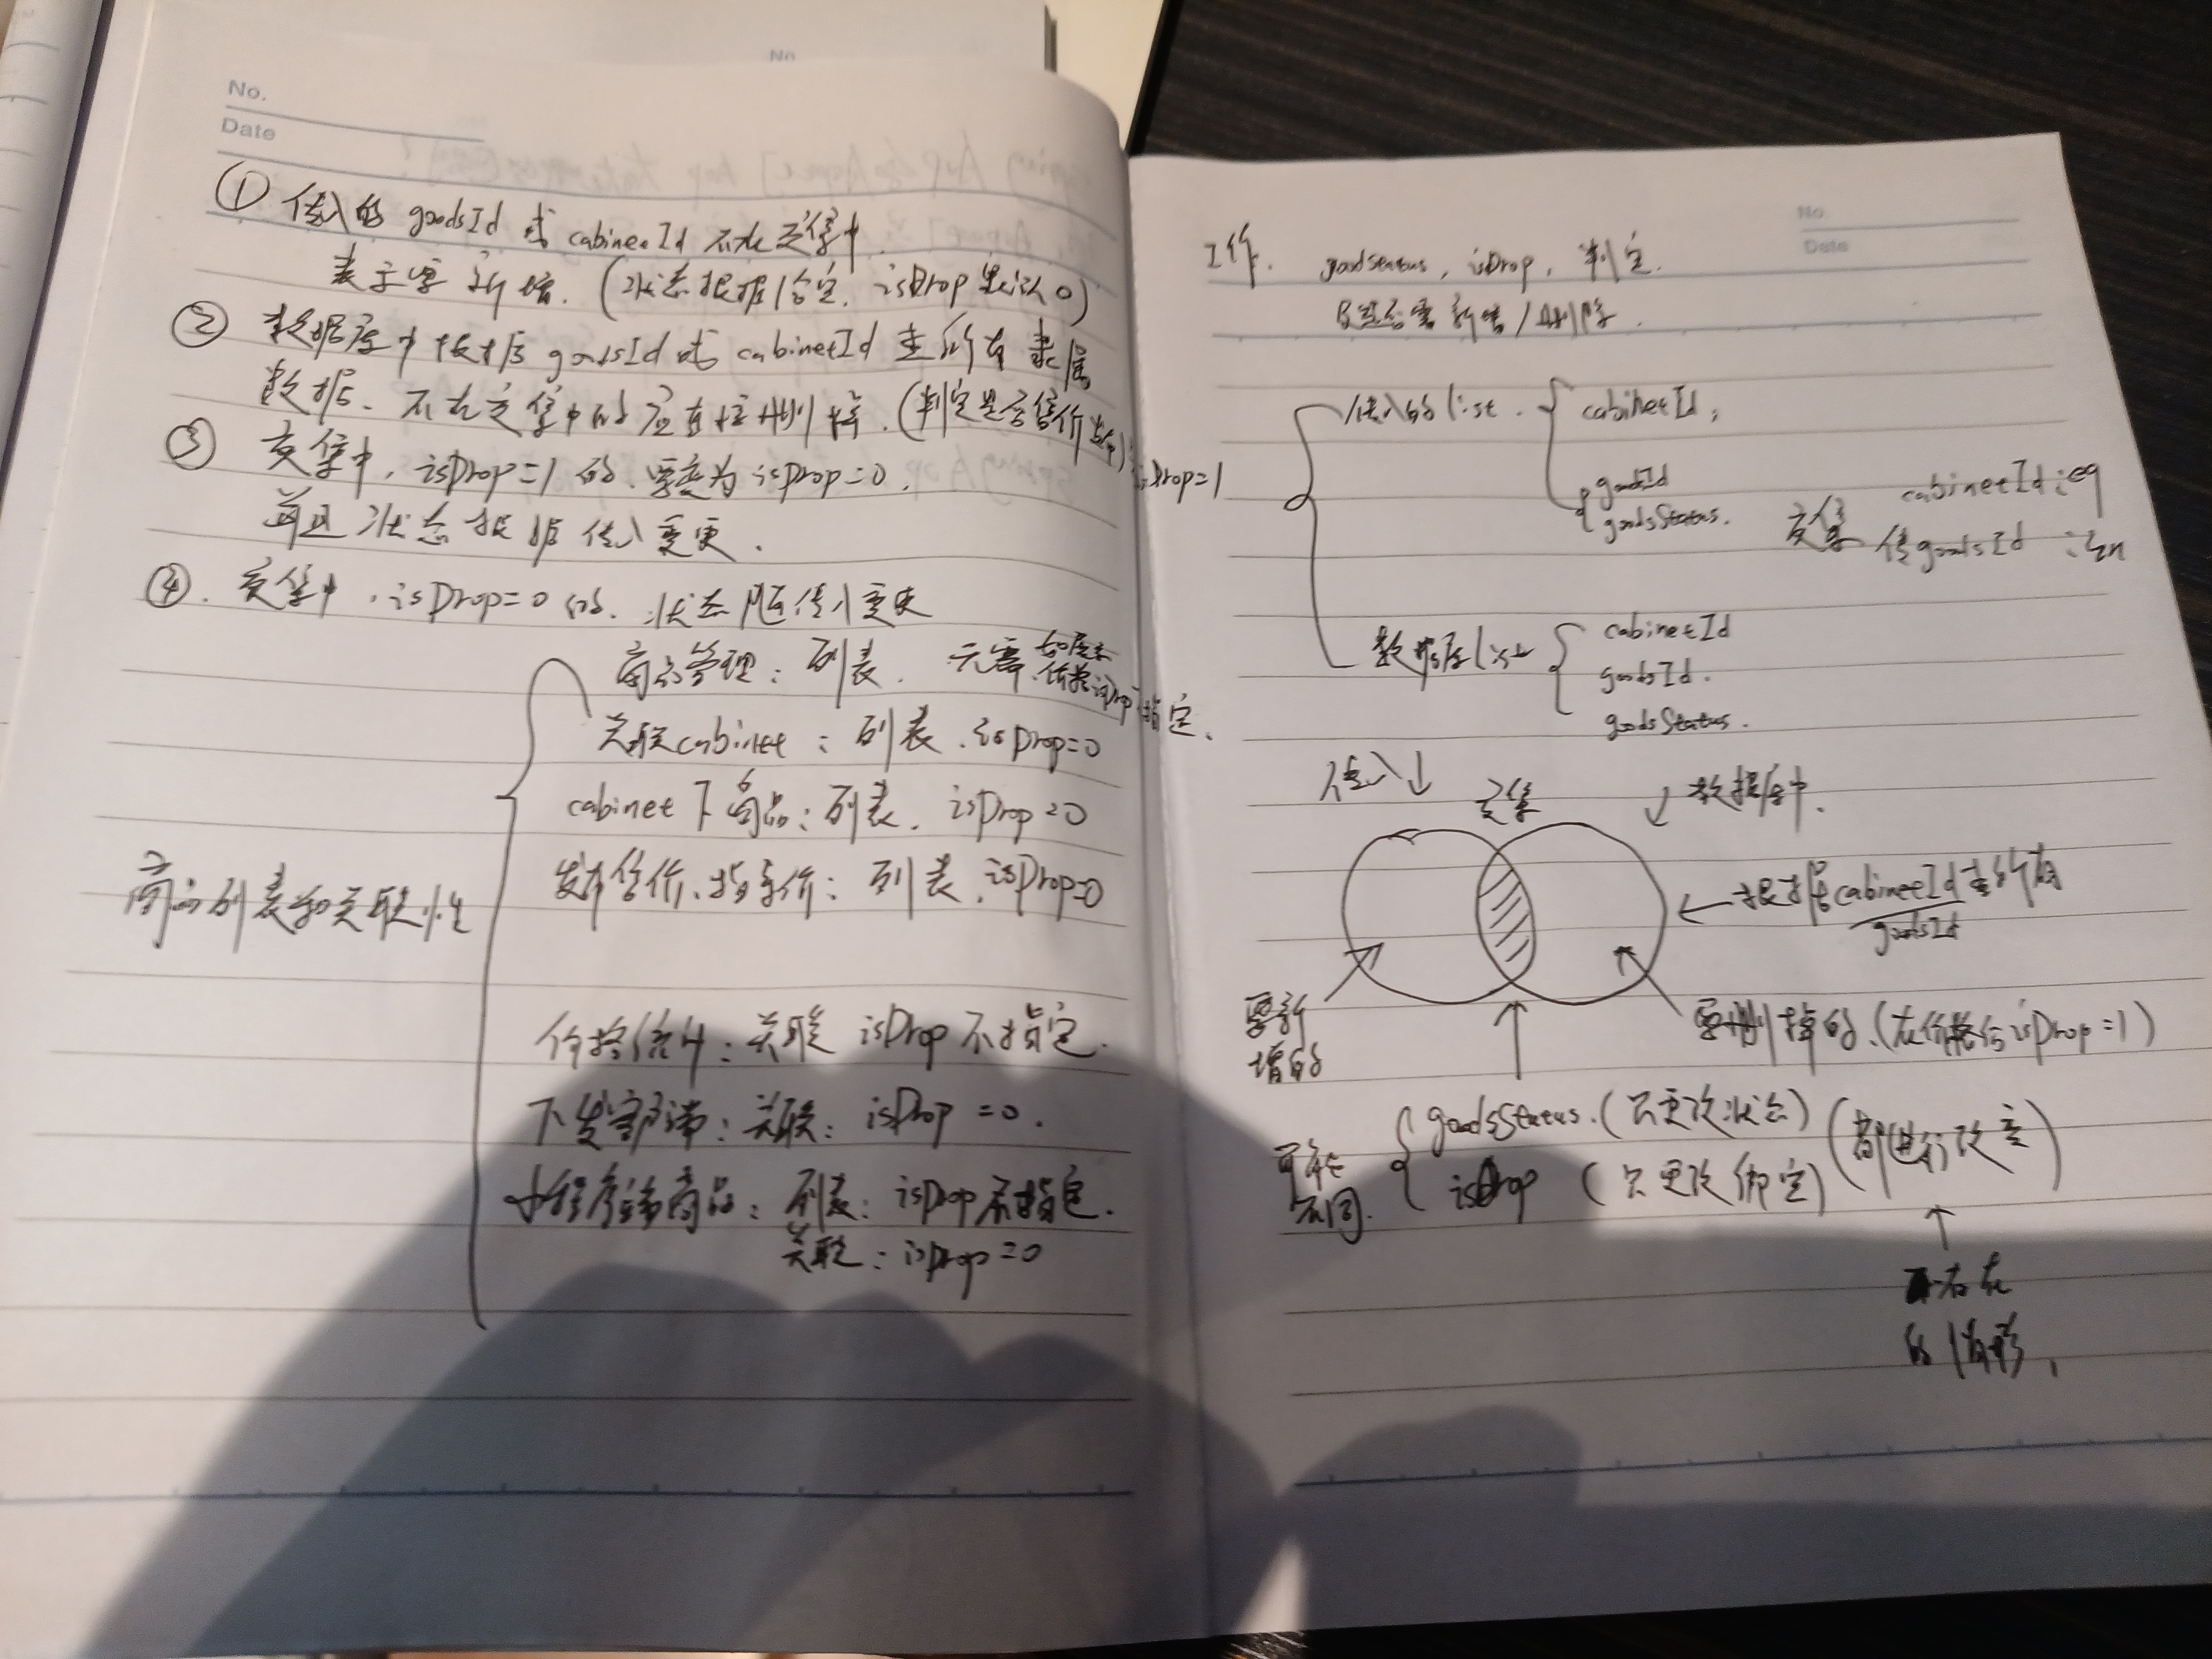 No.
Date
① 传入的 goodsId 或 cabinetId 不在交集中.
表示要新增. (状态根据给定. isDrop 默认 0)
② 数据库中根据 goodsId 或 cabinetId 查所有隶属
数据. 不在交集中的应直接删掉. (判定是否售价) isDrop=1
③ 交集中, isDrop=1 的. 要变为 isDrop=0.
并且状态根据传入变更.
④. 交集中, isDrop=0 的. 状态随传入变更
商品管理: 列表. 无需 指定.
关联cabinet: 列表. isDrop=0
cabinet 下商品: 列表. isDrop=0
发布售价、指导价: 列表. isDrop=0
商品列表和关联性
价格统计: 关联 isDrop 不指定.
下发: 关联: isDrop =0.
小程序商品: 列表: isDrop 不指定.
关联: isDrop =0
No.
Date
工作. goodsStatus, isDrop, 判定.
及是否需新增/删除.
传入的 list. cabinetId,
goodsId
goodsStatus.
交集 cabinetId: eq
传goodsId : in
数据库list cabinetId
goodsId.
goodsStatus.
传入↓ 交集 ↓数据库中.
← 根据cabinetId查所有
goodsId
要新
增的
要删掉的. (有价格行isDrop=1)
可能
不同.
goodsStatus. (只更改状态)
isDrop (只更改绑定)
(都进行改变)
↑
存在
的情形.